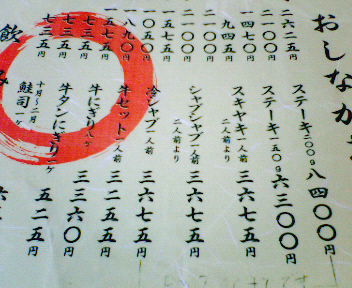 おしながき
ステーキ二〇〇g 八四〇〇円
ステーキ一五〇g 六三〇〇円
スキヤキ一人前 三六七五円
二人前より
シャブシャブ一人前 三六七五円
二人前より
冷シャブ一人前 三六七五円
牛セット一人前 三二五五円
牛にぎり八ケ 三一五五円
牛タンにぎり二ケ 三三六〇円
十月〜二月
鮭司一 五二五円
一六二五円
二一〇〇円
一四七〇円
九四五円
二一〇〇円
一五七五円
一〇五〇円
一八九〇円
一五七五円
七三五円
七三五円
飲み